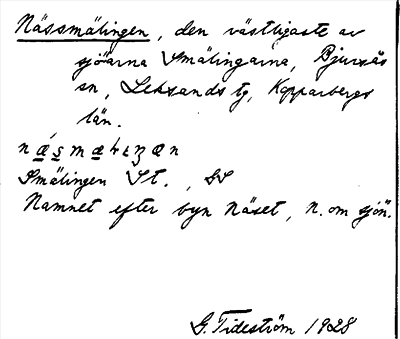 Nässmälingen, den västligaste av
sjöarna Smälingarna, Bjursås
sn, Leksands tg, Kopparbergs
län.
Smälingen St., GS
Namnet efter byn Näset, N. om sjön.
G. Tideström 1928